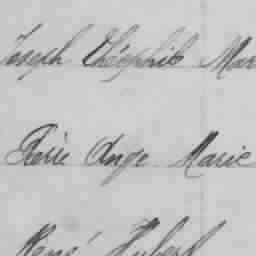 Joseph Théophile Mar
Pierre Ange Marie
René Hubert